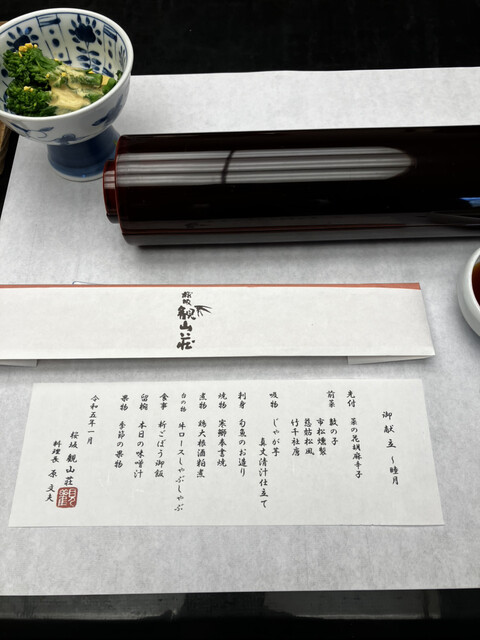 桜坂
観山荘
御献立 〜睦月
先付 菜の花胡麻辛子
前菜 数の子
市松燻製
慈姑松風
竹千社唐
吸物 じゃが芋
真丈清汁仕立て
刺身 旬魚のお造り
焼物 寒鰤奉書焼
煮物 鶏大根酒粕煮
台の物 牛ロースしゃぶしゃぶ
食事 新ごぼう御飯
留椀 本日の味噌汁
果物 季節の果物
令和五年一月
桜坂 観山荘
料理長 原 文夫